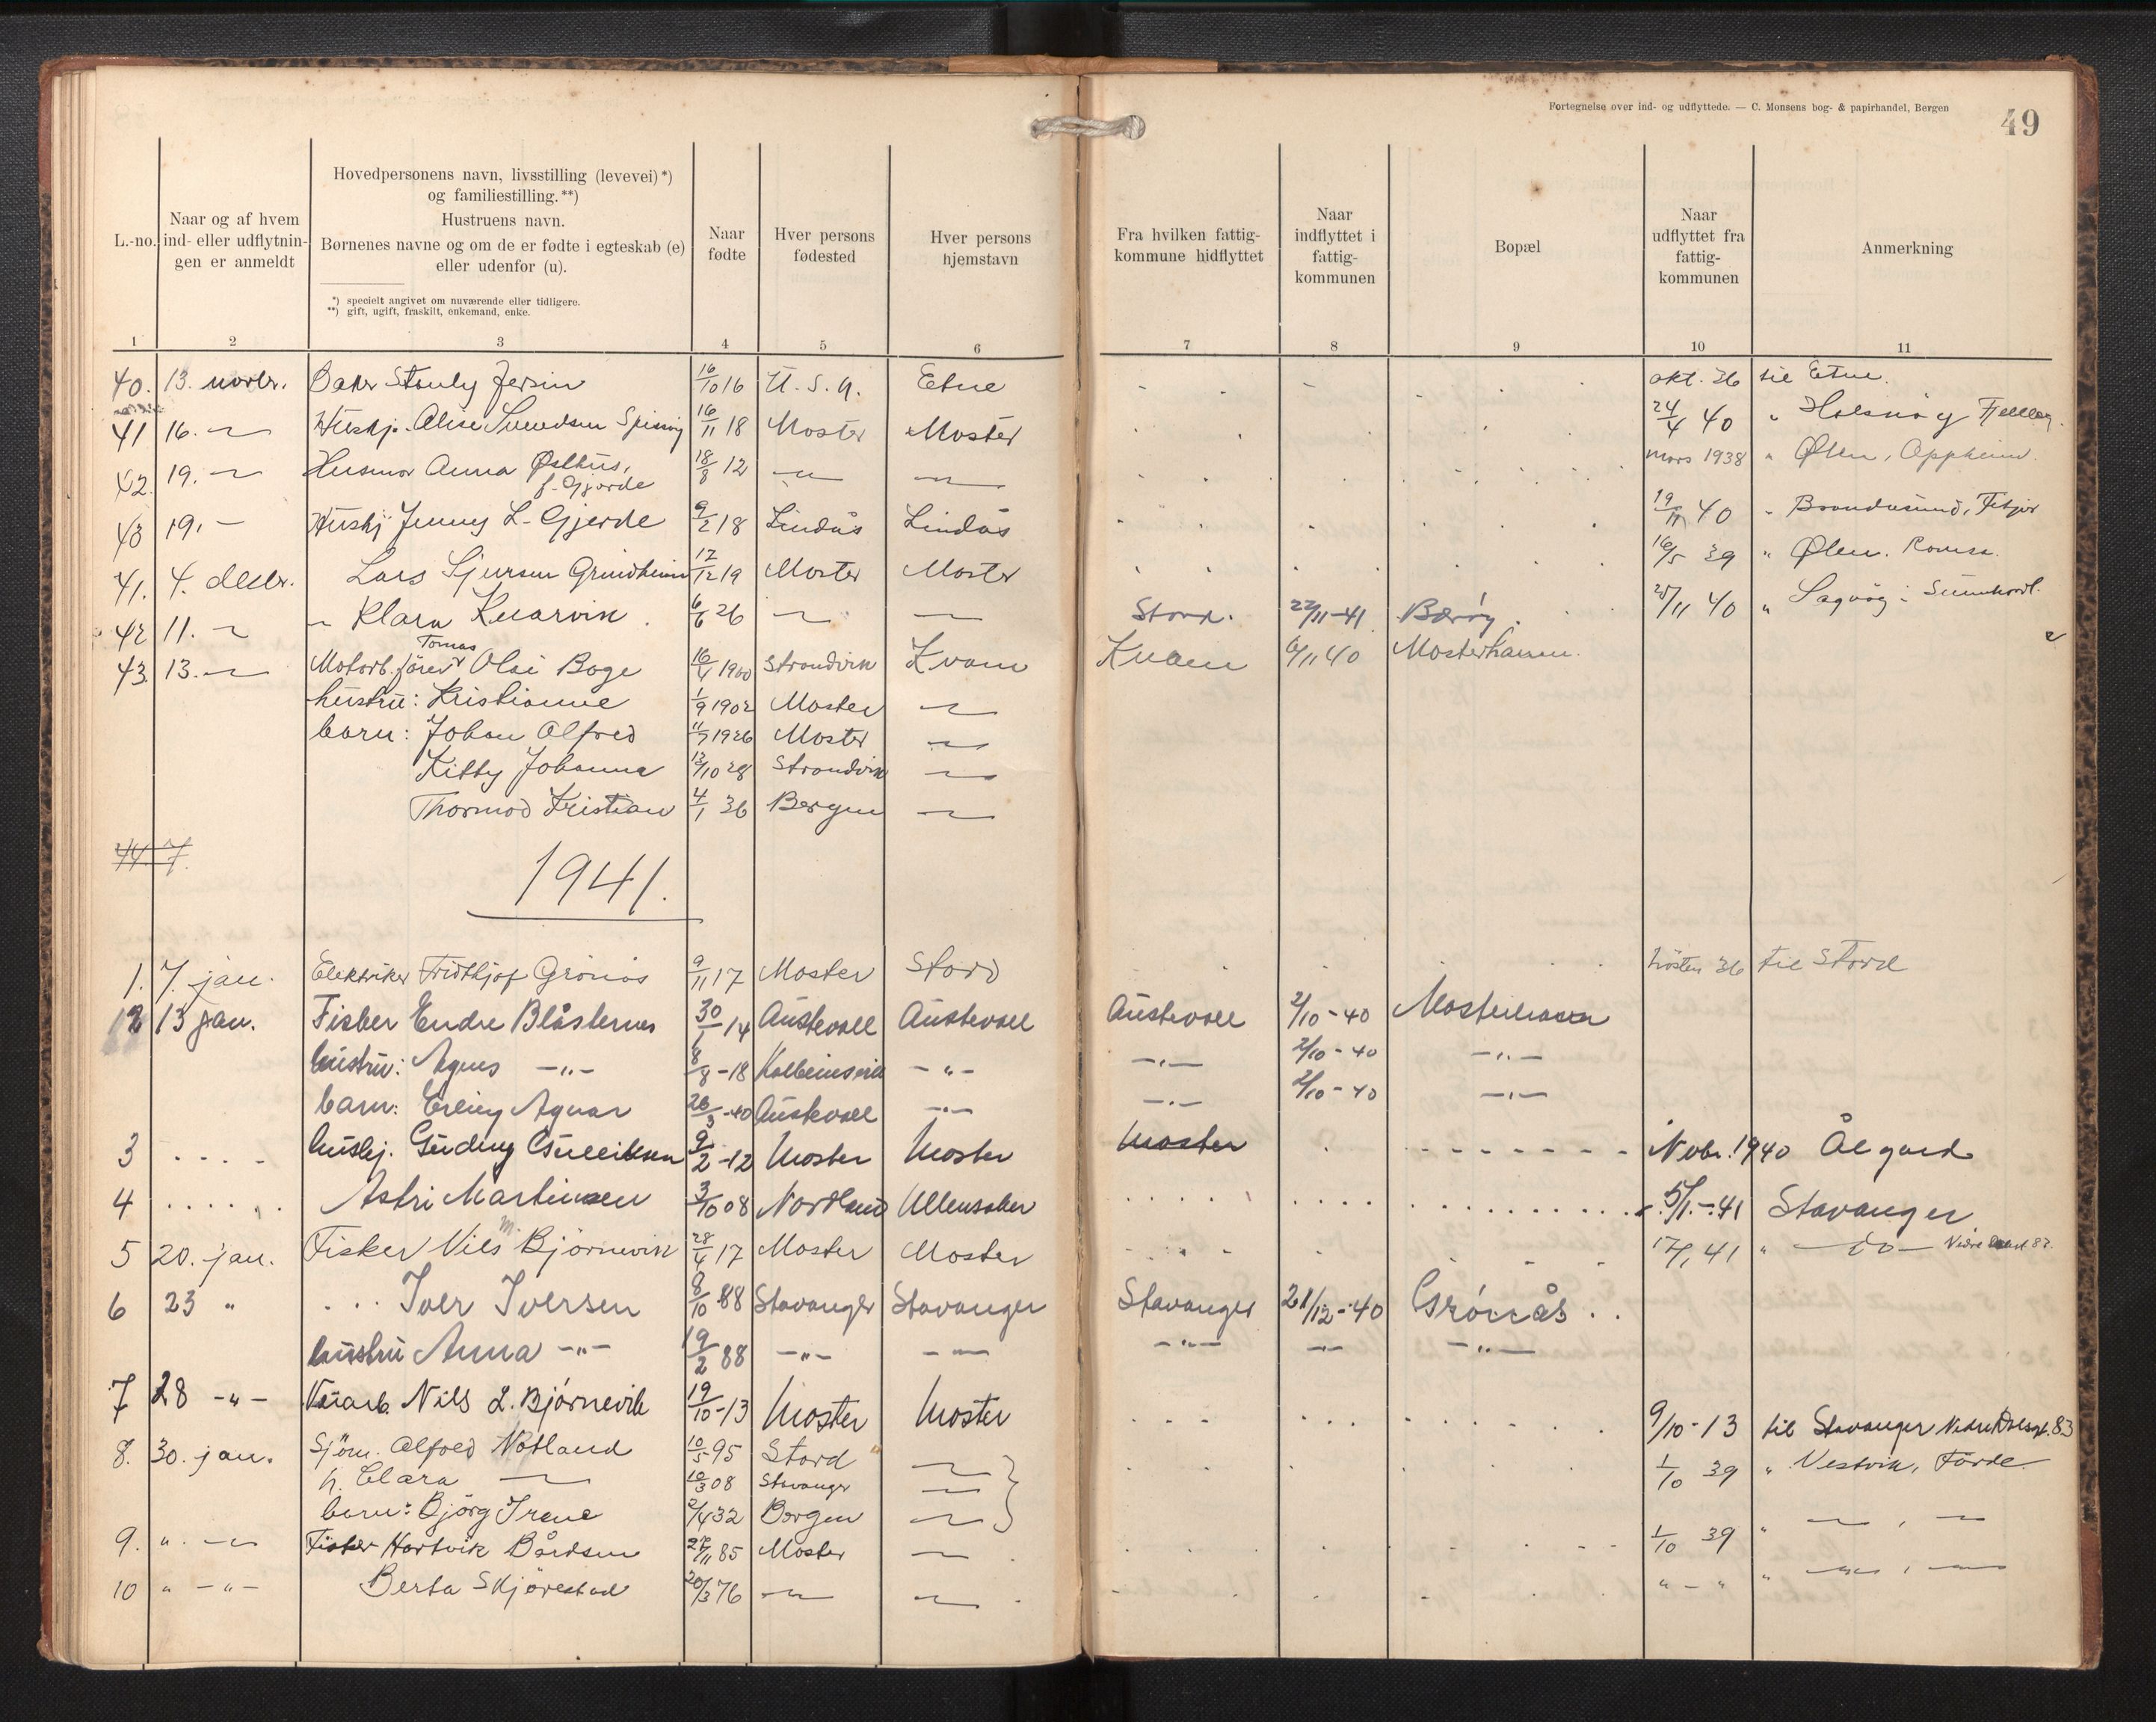 Fortegnelse over ind- og udflyttede. — C. Monsens bog- & papirhandel, Bergen
49
L.-no.
Naar og af hvem ind- eller udflytningen er anmeldt
Hovedpersonens navn, livsstilling (levevei)*)
og familiestilling.**)
Hustruens navn.
Børnenes navne og om de er fødte i egteskab (e)
eller udenfor (u).
*) specielt angivet om nuværende eller tidligere.
**) gift, ugift, fraskilt, enkemand, enke.
Naar fødte
Hver persons fødested
Hver persons hjemstavn
Fra hvilken fattigkommune hidflyttet
Naar indflyttet i fattigkommunen
Bopæl
Naar udflyttet fra fattigkommunen
Anmerkning
1 2 3 4 5 6 7 8 9 10 11
40. 13. novbr. Baker Stanly Jersin 16/10 16 U.S.A. Etne okt. 36 til Etne.
41 16. Hushj. Alise Svendsen 16/11 18 Moster Moster 24/4 40 " Halsnøy Fjellberg.
42. 19. Husmor Anna Østhus, f. Gjerde 18/8 12 mars 1938 " Ølen,
43 19. Hushj. Jenny L. Gjerde 9/2 18 Lindås Lindås 19/11 40 " Brandasund, Fitjar
41. 4. desbr. Lars Sjursen Grindheim 17/12 19 Moster Moster 16/5 39 " Ølen.
42 11. Klara Knarvik 6/6 26 Stord. 22/11-41 Bærøy. 25/11 40 " Sagvåg i Sunnhordl.
43. 13. Motorb.fører Tomas Olai Boge 16/4 1900 Strandvik Kvam Kvam 6/11 40 Mosterhamn.
hustru: Kristianne 1/9 1902 Moster
barn: Johan Alfred 11/7 1926 Moster
Kitty Johanna 13/10 28 Strandvik
Thormod Kristian 4/1 36 Bergen
44. 7.
1941.
1. 7. jan. Elektriker Fridthjof Grønås 9/11 17 Moster Stord høsten 36 til Stord
2 13 jan. Fisker Endre Blåsternes 30/1 14 Austevoll Austevoll Austevoll 2/10-40 Mosterhamn
hustru: Agnes —"— 8/8-18 —"— —"— 2/10-40 —"—
barn: Erling Agnar 26/3-40 Austevoll —"— —"— 2/10-40 —"—
3 hushj. Gudny Gulliksen 9/2-12 Moster Moster Moster Novbr. 1940 Ålgard
4 Astri Martinsen 3/10 08 Nordland Ullensaker 5/1-41 Stavanger
5 20. jan. Fisker Nils M. Bjørnevik 28/4 17 Moster Moster 17/1 41 " —do—
6 23 " Iver Iversen 8/10 88 Stavanger Stavanger Stavanger 21/12-40 Grønås
hustru Anna —"— 19/2 88 —"— —"— —"— —"— —"—
7 28 —"— Nils L. Bjørnevik 19/10-13 Moster Moster 9/10-13 til Stavanger
8. 30. jan. Sjøm. Alfred Notland 10/5 95 Stord 1/10 39 " Vestvik, Førde
h. Clara 10/3 08 Stavanger
barn: Bjørg Irene 2/4 32 Bergen
9. " Fisker Hartvik Bårdsen 27/11 85 Moster 1/10 39 "
10 " —"— Berta Skjørestad 20/3 76 " — "